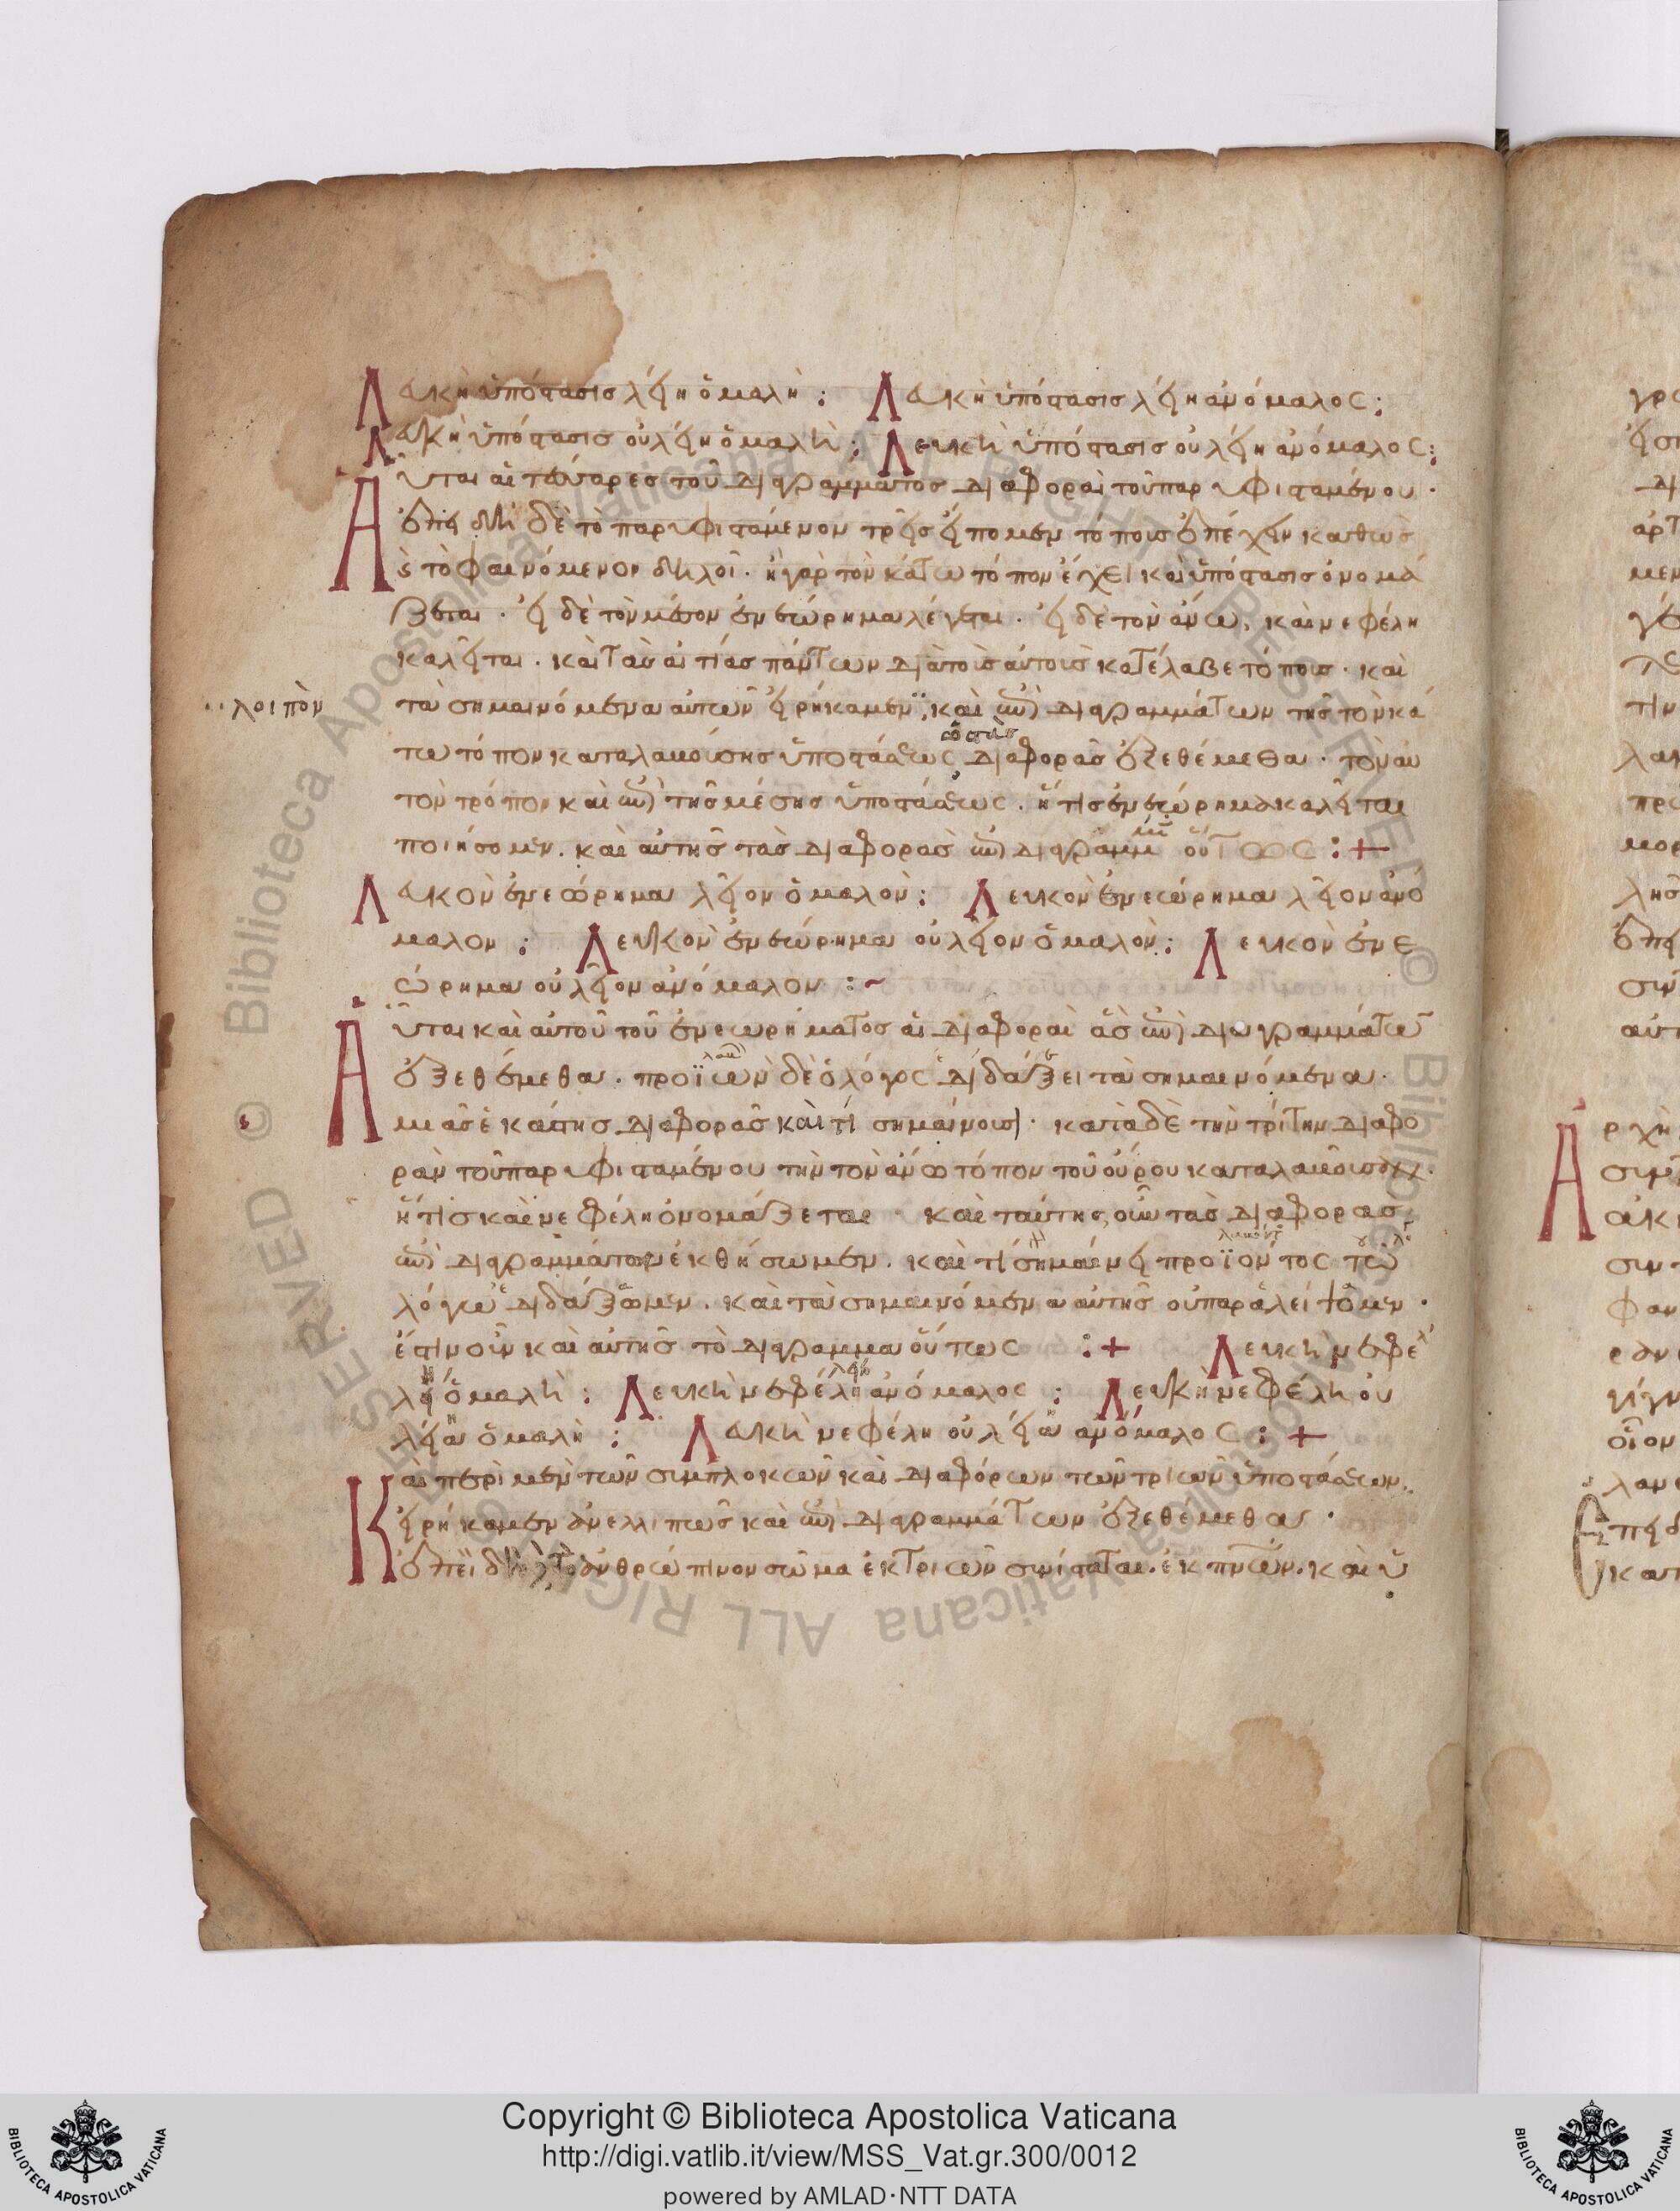 Λευκὴ ὑπόστασις λείη ὁμαλή: Λευκὴ ὑπόστασις λείη ἀνόμαλος:
Λευκὴ ὑπόστασις οὐ λείη ὁμαλὴ: Λευκὴ ὑπόστασις οὐ λείη ἀνόμαλος:
Αὗται αἱ τέσσαρες τοῦ διαγράμματος διαφοραὶ τοῦ παρυφισταμένου.
ἐπειδὴ δὲ τὸ παρυφιστάμενον τρεῖς εἴπομεν τόπους ἐπέχειν καθὼς
τὸ φαινόμενον δηλοῖ. ἢ γὰρ τὸν κάτω τόπον ἔχει καὶ ὑπόστασις ὀνομά
ζεται. εἰ δὲ τὸν μέσον ἐνεώρημα λέγεται. εἰ δὲ τὸν ἄνω, καὶ νεφέλη
καλεῖται. καὶ τὰς αἰτίας πάντων κατέλαβε τόπους. καὶ
λοιπὸν
τὰ σημαινόμενα αὐτῶν εἰρήκαμεν, καὶ διαγραμμάτων τῆς τὸν κά
τω τόπον καταλαμούσης ὑποστάσεως διαφορὰς ἐξεθέμεθα. τὸν αὐ
τὸν τρόπον καὶ τῆς μέσης ὑποστάσεως. ἥτις ἐνεώρημα καλεῖται
ποιήσομεν. καὶ αὐτῆς τὰς διαφορὰς διαγραμμ οὕτως :+
Λευκὸν ἐνεώρημα λεῖον ὁμαλὸν: Λευκὸν ἐνεώρημα λεῖον ἀνό
μαλον: Λευκὸν ἐνεώρημα οὐ λεῖον ὁμαλὸν: Λευκὸν ἐνε
ώρημα οὐ λεῖον ἀνόμαλον :~
Αὗται καὶ αὐτοῦ τοῦ ἐνεωρήματος αἱ διαφοραὶ ἃς διαγραμμάτων
ἐξεθέμεθα. προϊὼν δὲ ὁ λόγος διδάξει τὰ σημαινόμενα
μιᾶς ἑκάστης διαφορᾶς καὶ τί σημαίνουσι. κατὰ δὲ τὴν τρίτην διαφο
ρὰν τοῦ παρυφισταμένου τὴν τὸν ἄνω τόπον τοῦ οὔρου
ἥτις καὶ νεφέλη ὀνομάζεται καὶ ταύτης οὖν τὰς διαφορὰς
διαγραμμάτων ἐκθήσωμεν. καὶ τί σημαίνει προϊόντος τῷ
λόγῳ διδάξωμεν. καὶ τὰ σημαινόμενα αὐτῆς οὐ παραλείψομεν.
ἔστιν οὖν καὶ αὐτῆς τὸ διάγραμμα οὕτως :+ Λευκὴ νεφέ
λη ὁμαλὴ: Λευκὴ νεφέλη ἀνόμαλος: Λευκὴ νεφέλη οὐ
λεία ὁμαλὴ: Λευκὴ νεφέλη οὐ λεία ἀνόμαλος :+
Καὶ περὶ μὲν τῶν συμπλοκῶν καὶ διαφόρων τῶν τριῶν ὑποστάσεων
εἰρήκαμεν ἀνελλιπῶς καὶ διαγραμμάτων ἐξεθέμεθα.
ἐπειδὴ τὸ ἀνθρώπινον σῶμα ἐκ τριῶν συνίσταται. ἐκ καὶ ὑ
Copyright © Biblioteca Apostolica Vaticana
http://digi.vatlib.it/view/MSS_Vat.gr.300/0012
powered by AMLAD·NTT DATA